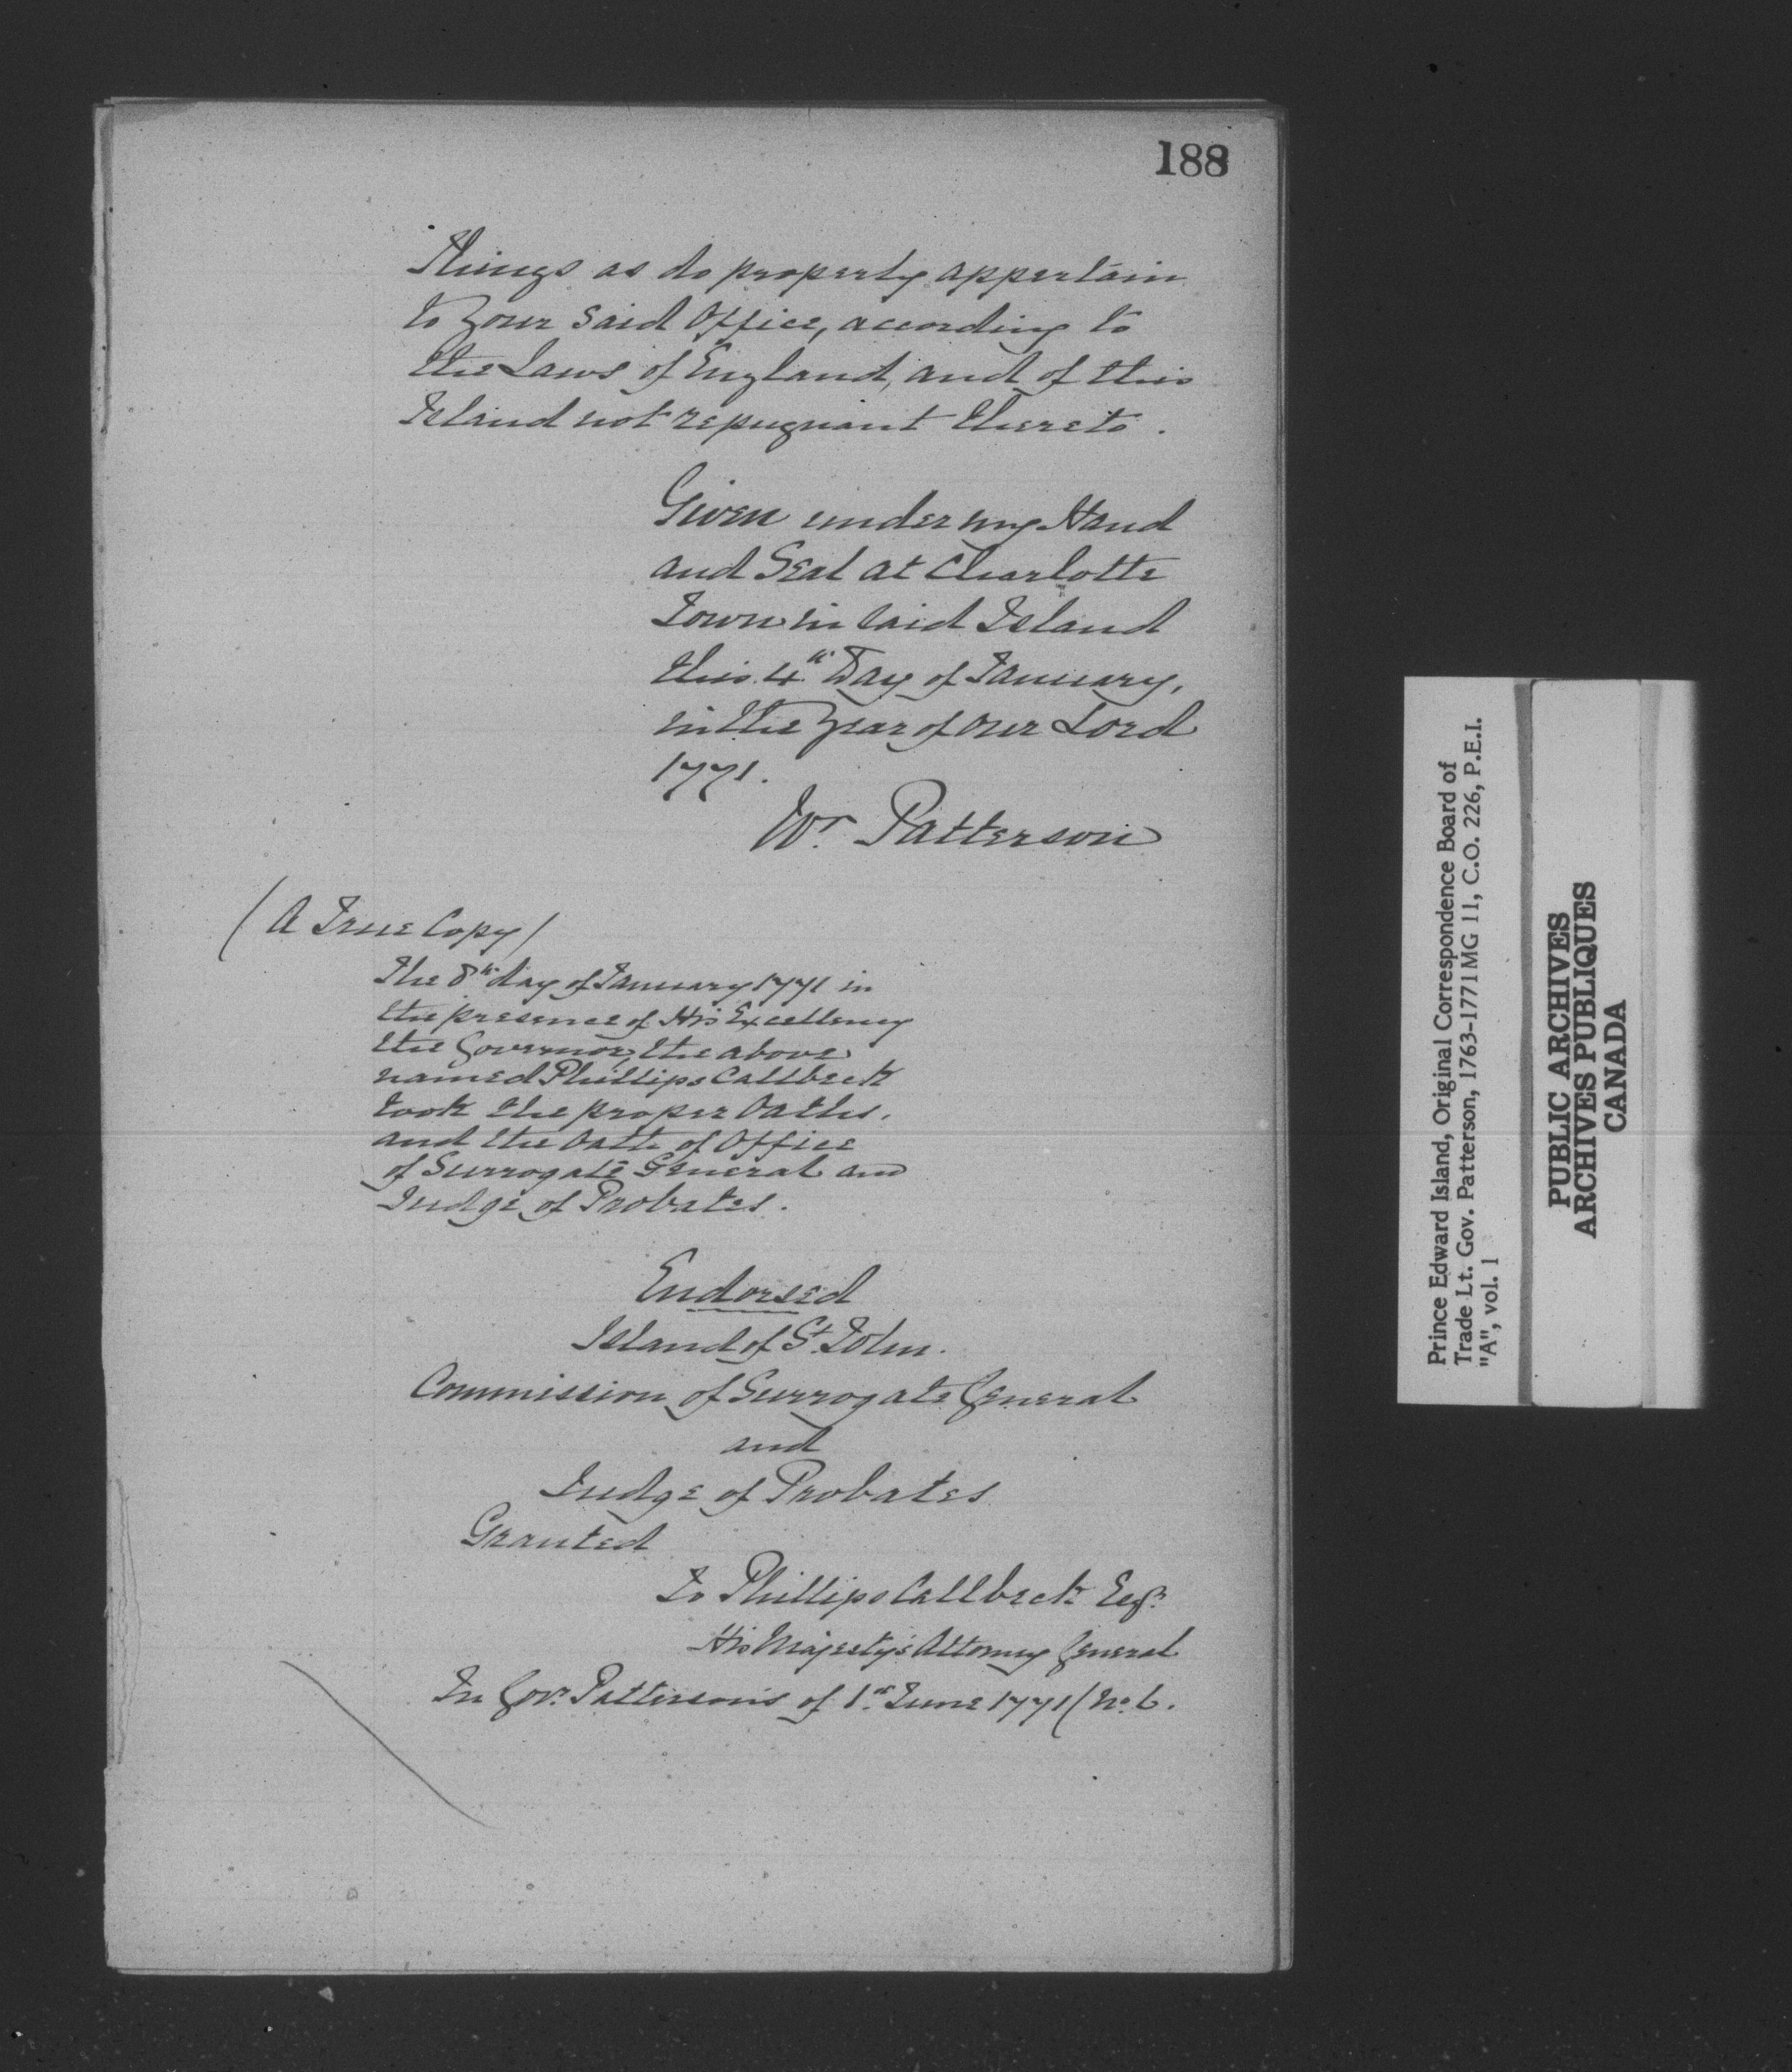 188
Things as do properly appertain
to your said Office, according to
the Laws of England, and of this
Island not repugnant thereto.
Given under my Hand
and Seal at Charlotte
Town in said Island
this 4th Day of January,
in the Year of our Lord
1771.
Wr. Patterson
(A True Copy)
The 8th day of January 1771 in
the presence of His Excellency
the Governor, the above
named Phillips Callbeck
took the proper Oaths,
and the Oath of Office
of Surrogate General and
Judge of Probates.
Endorsed
Island of St. John.
Commission of Surrogate General
and
Judge of Probates
Granted
to Phillips Callbeck Esqr.
His Majesty's Attorney General
In Govr. Patterson's of 1st June 1771 (No. 6.
Prince Edward Island, Original Correspondence Board of
Trade Lt. Gov. Patterson, 1763-1771 MG 11, C.O. 226, P.E.I.
"A", vol. 1
PUBLIC ARCHIVES
ARCHIVES PUBLIQUES
CANADA